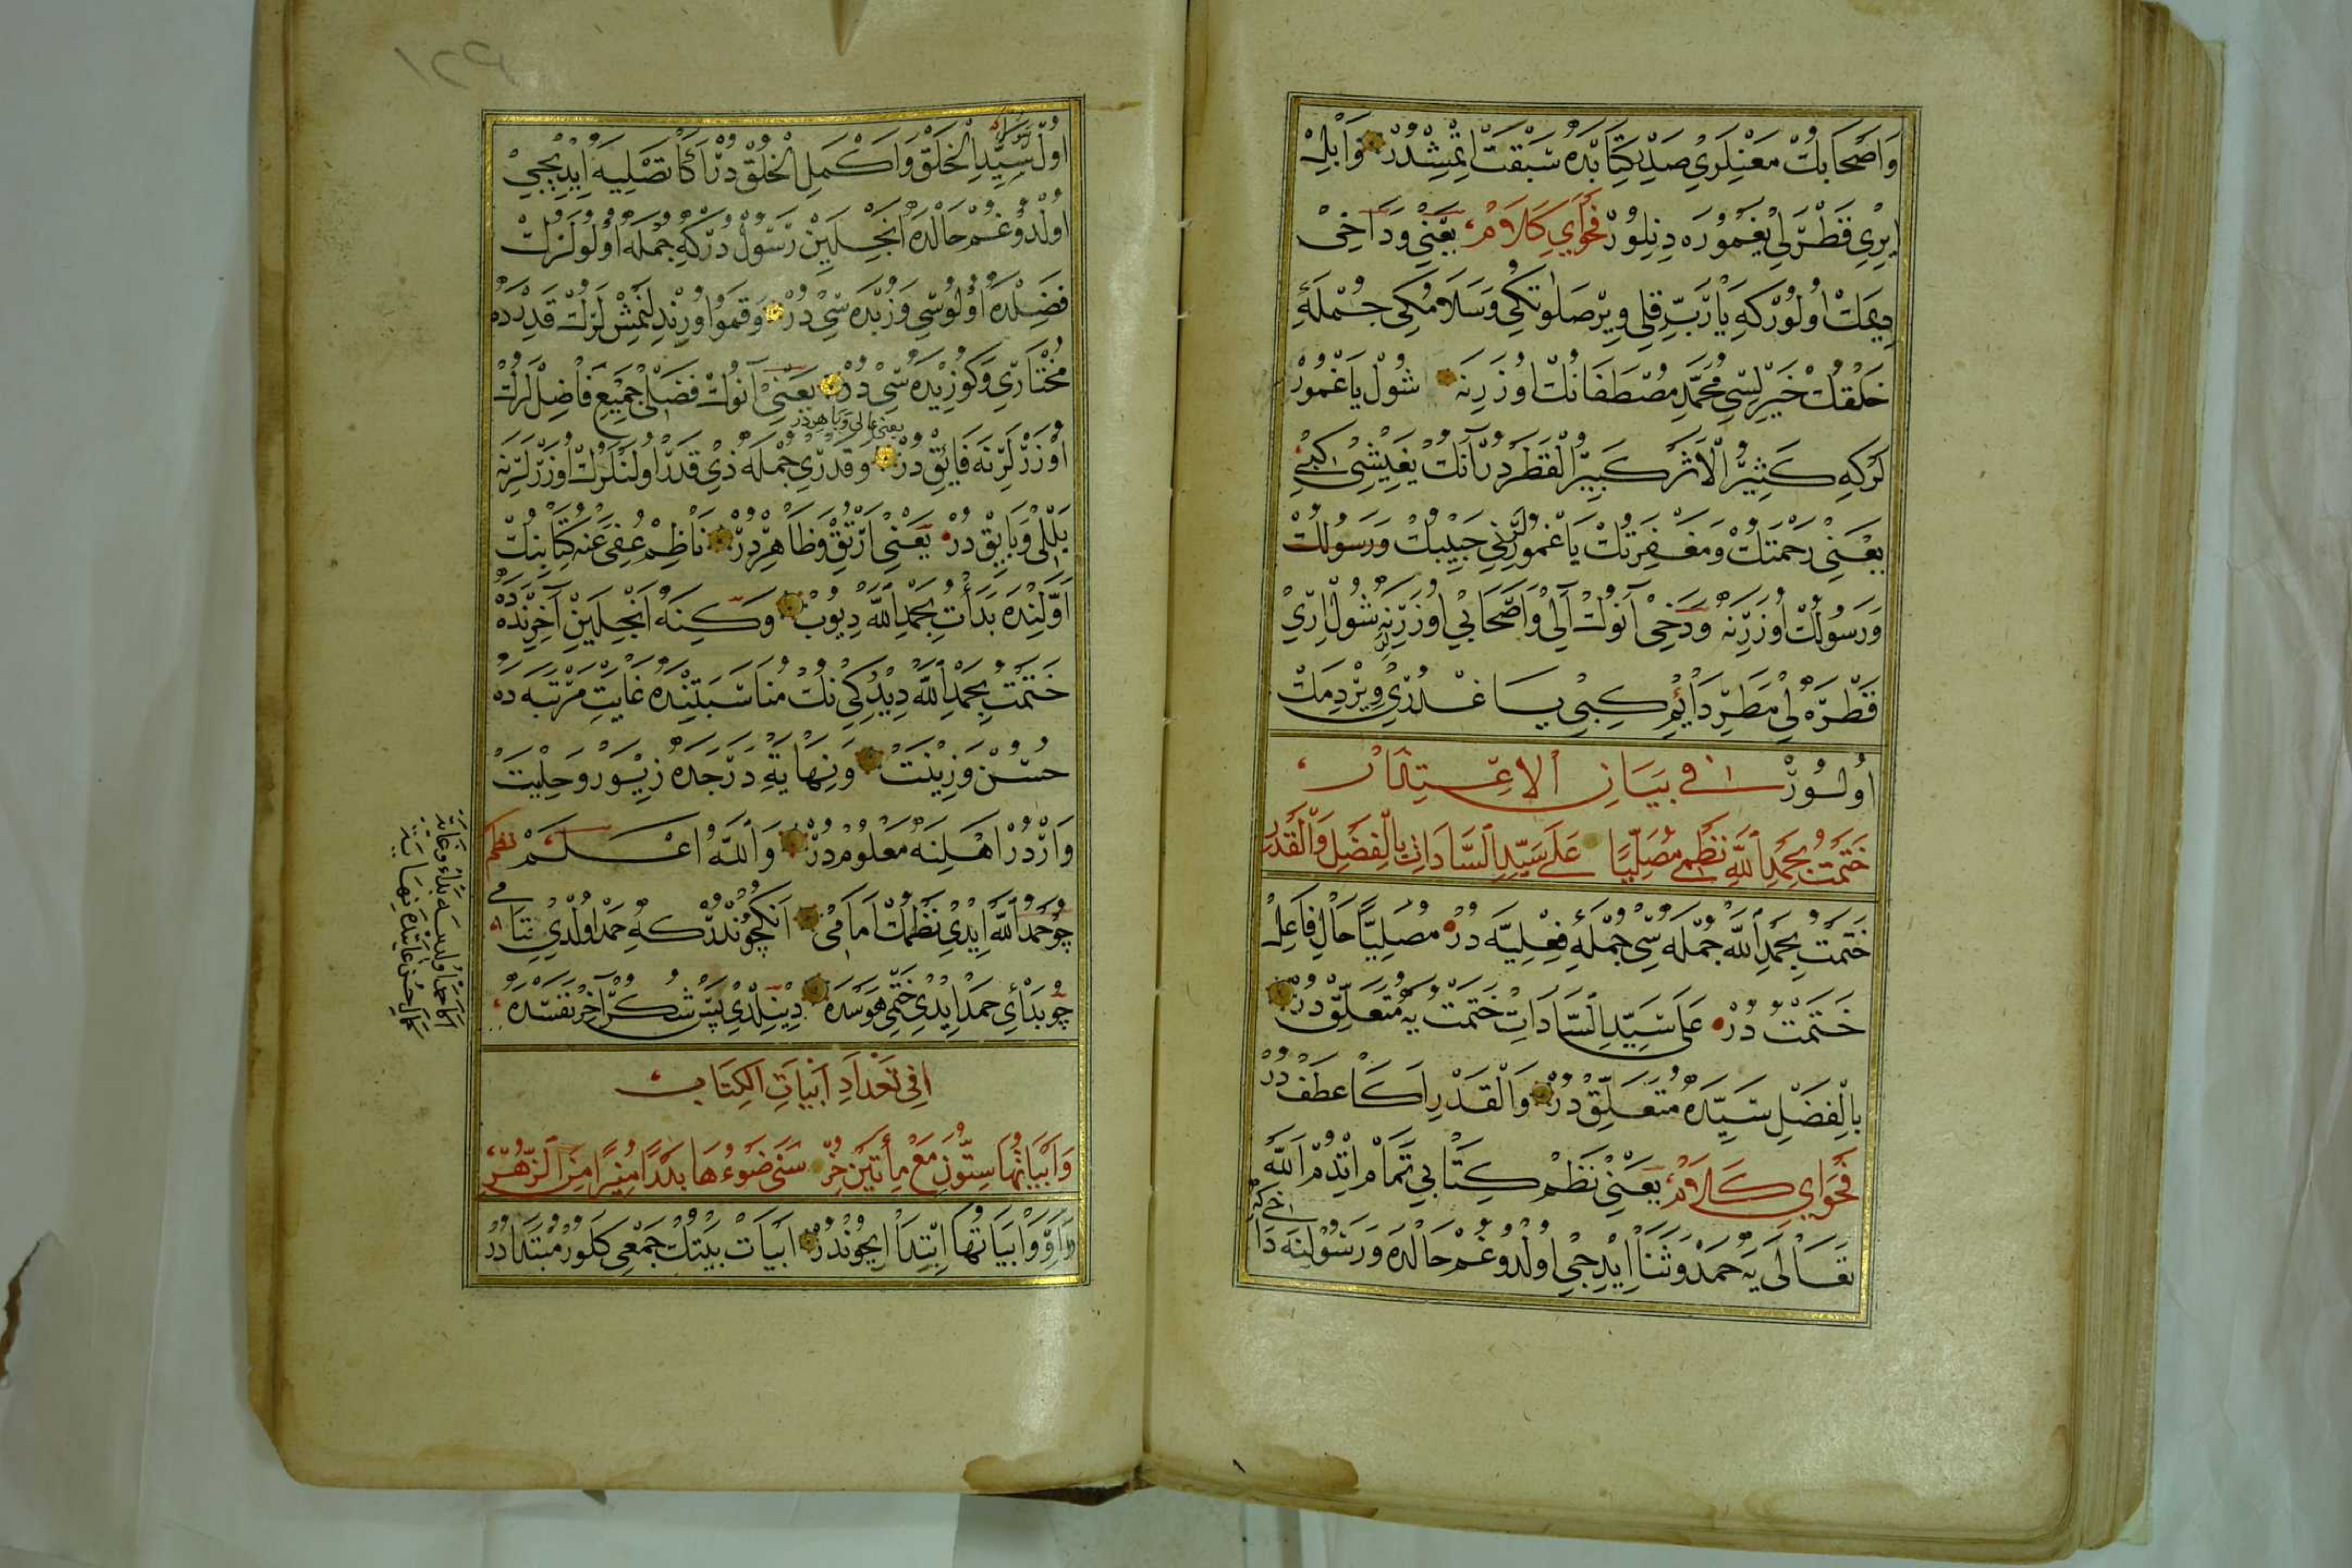 وَاَصْحَابُكْ مَعْنِلَرِي صَدْرِ كِتَابْدَه سَبْقَتْ اِتْمِشْدُرْ وَابِلْ
اِيرِي قَطْرَلِي يَغْمُورَه دِينِلُورْ فَحْوَايِ كَلَامْ يَعْنِي وَدَاخِي
دِيمَكْ اُولُورْكِه يَارَبِّ قِلِي وِيرْ صَلَوَاتِكِي وَسَلَامُكِي جُمْلَهٔ
خَلْقُكْ خَيِرْلِسِي مُحَمَّدِ مُصْطَفَانُكْ اُوزَرِنَه شُولْ يَاغْمُورْ
لَرْكِه كَثِيرُ الْاَثَرْ كَبِيرُ الْقَطَرْدُرْ آنُكْ يَغِيشِي
يَعْنِي رَحْمَتُكْ وَمَغْفِرَتُكْ يَاغْمُورْلَرِنِي حَبِيبُكْ وَرَسُولُكْ
وَرَسُولُكْ اُوزَرِنَه وَدَخِي آنُوكْ آلِي وَاَصْحَابِي اُوزَرِنَه شُولْ اِرِي
قَطْرَه لِي مَطَرِ دَائِمْ كِبِي يَاغْدُرِي وِيرْ دِمَكْ
اُولُورْ فِي بَيَانِ الاِعْتِذَارْ
خَتَمْتُ بِحَمْدِ اللّٰهِ نَظْمِي مُصَلِّيًا عَلَى سَيِّدِ السَّادَاتِ بِالْفَضْلِ وَالْقَدْرِ
خَتَمْتُ بِحَمْدِ اللّٰه جُمْلَه سِي جُمْلَهٔ فِعْلِيَّه دُرْ مُصَلِّيًا حَالِ فَاعِلْ
خَتَمْتُ دُرْ عَلَى سَيِّدِ السَّادَاتِ خَتَمْتُ يَه مُتَعَلِّقْ دُرْ
بِالْفَضْلِ سَيِّدَه مُتَعَلِّقْ دُرْ وَالْقَدْرِ اَكَا عَطَفْ دُرْ
فَحْوَايِ كَلَامْ يَعْنِي نَظْمِ كِتَابِي تَمَامْ اِتْدُمْ اَللّٰه
تَعَالَى يَه حَمْدُ وَثَنَا اِيْدِجِي اُولْدُوغُمْ حَالْدَه وَرَسُولِنَه دَا
اُولْ سَيِّدِ الْخَلْقْ وَاَكْمَلِ الْخُلْقْ دُرْ اَكَا تَصْلِيَه اِيْدِيجِي
اُولْدُوغُمْ حَالْدَه اَنْجِلَيِنْ رَسُولْ دُرْكِه جُمْلَه اُولُولَرْكْ
فَضِلْدَه اُولُوسِي وَزُبْدَه سِي دُرْ وَقَمُو اُورِنْدِلَنْمِشْ لَرْكْ قَدِرْدَه
مُخْتَارِي وَكُوزِيدَه سِي دُرْ يَعْنِي آنُوكْ فَضْلِي جَمِيعِ فَاضِلْ لَرْكْ
يعنى عالى وباهردر
اُوزَرْلَرِنَه فَايِقْ دُرْ وَقَدْرِي جُمْلَه ذِي قَدْرْ اُولَنْلَرُكْ اُوزَرْلَرِنَه
بَلَلِي وَبَايِقْ دُرْ يَعْنِي اَرْتُقْ وَظَاهِرْدُرْ نَاظِمْ عُفِيَ عَنْه كِتَابِنُكْ
اَوَّلِنْدَه بَدَأْتُ بِحَمْدِ اللّٰه دِيُوبْ وَكِنَه اَنْجِلَيِنْ آخِرِنْدَه
خَتَمْتُ بِحَمْدِ اللّٰه دِيْدُكِي نُكْ مُنَاسَبَتِنْدَه غَايَتِ مَرْتَبَه دَه
حُسْن وَزِينَتْ وَنِهَايَةِ دَرَجَدَه زِيوَرْ وَحِلْيَتْ
وَارْدُرْ اَهْلِنَه مَعْلُومْ دُرْ وَاللّٰهُ اَعْلَمْ نظم
چُو حَمْدُ اللّٰه اِيْدِي نَظْمُكْ اَمَامِي اَنِكْچُونْدُرْكِه حَمْد اُولْدِي خِتَامِي
چُو بَدْأِي حَمْدْ اِيْدِي خَتْمِي هَوَسْدَه دِينِلْدِي پَسْ شُكُرْ آخِرْ نَفَسْدَه
فِي تَعْدَادِ اَبْيَاتِ الكِتَابِ
وَاَبْيَاتُهَا سِتُّونَ مَعْ مِأَتَيْنِ خُذْ سَنَى ضَوْءُهَا بَدْرًا مُنِيرًا مِنَ الزُّهْرِ
وَاوْ وَاَبْيَاتُهَا اِبْتِدَا اِيچُونْدُرْ اَبْيَاتْ بَيْتُكْ جَمْعِي كَلُورْ مُبْتَدَادُرْ
١٢٩